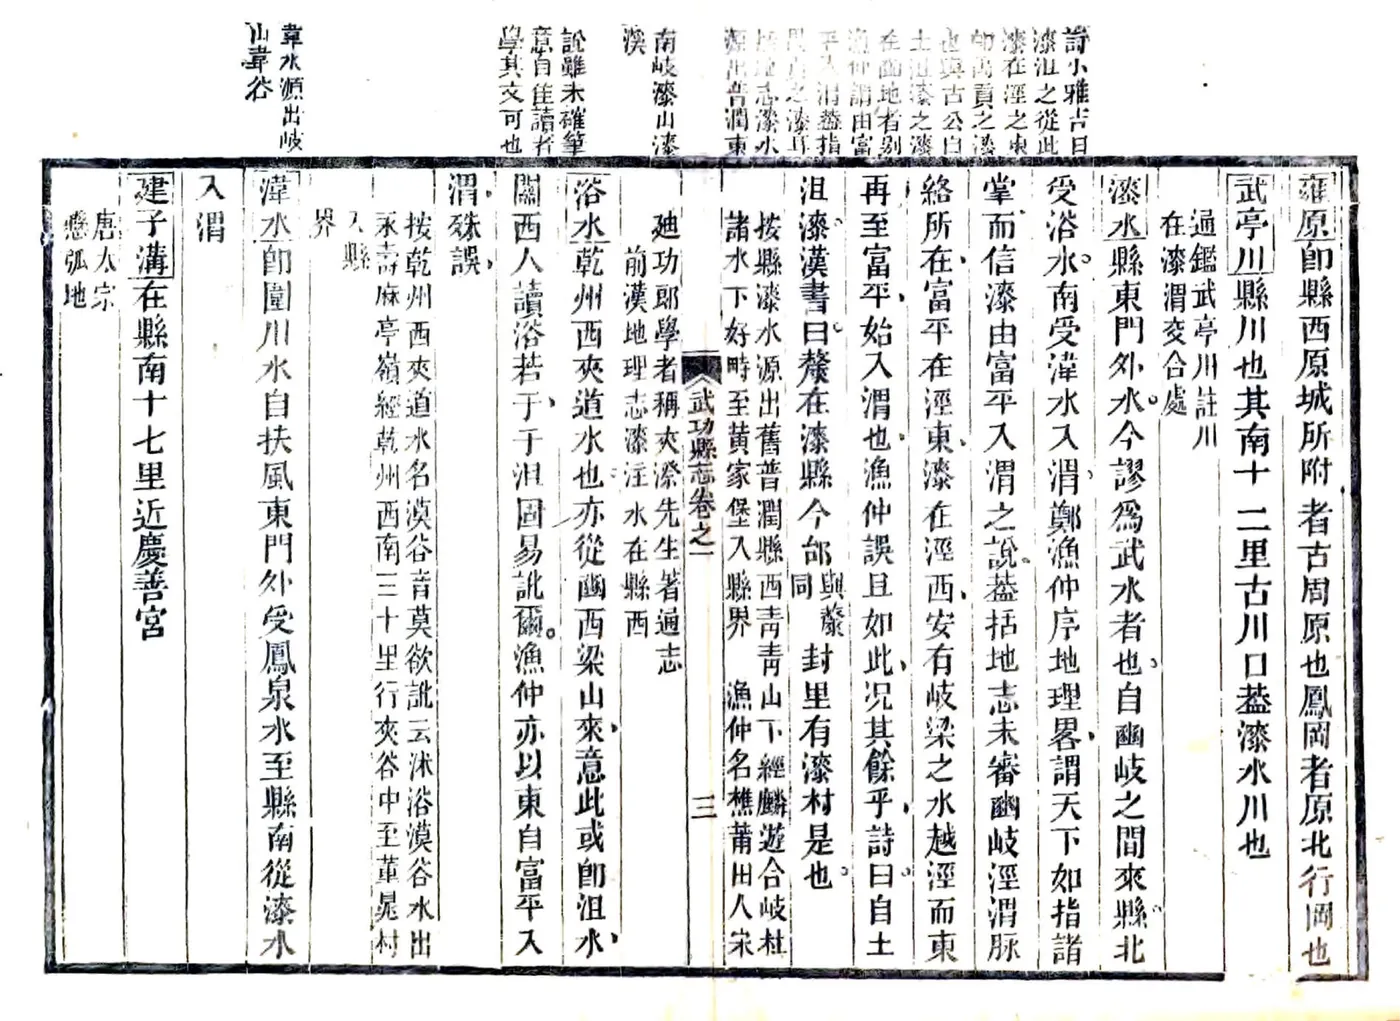 詩小雅吉日
漆沮之從此
漆在涇之東
卽禹貢之漆
也與古公自
土沮漆之漆
在豳地者别
漁仲謂由富
平入渭葢指
禹貢之漆耳
括地志漆水
源出普潤東
南岐漆山漆
溪
說雖未確筆
意自佳讀者
學其文可也
韋水源出岐
山韋谷
雍原卽縣西原城所附者古周原也鳳岡者原北行岡也
武亭川縣川也其南十二里古川口葢漆水川也
通鑑武亭川註川
在漆渭交合處
漆水縣東門外水今謬爲武水者也自豳岐之間來縣北
受浴水南受湋水入渭鄭漁仲序地理畧謂天下如指諸
掌而信漆由富平入渭之說葢括地志未審豳岐涇渭脈
絡所在富平在涇東漆在涇西安有岐梁之水越涇而東
再至富平始入渭也漁仲誤且如此况其餘乎詩曰自土
沮漆漢書曰漦在漆縣今邰
與漦
同
封里有漆村是也
按縣漆水源出舊普潤縣西青青山下經麟遊合岐杜
諸水下好畤至黄家堡入縣界 漁仲名樵莆田人宋
武功縣志卷之一
三
廸功郎學者稱夾漈先生著通志
前漢地理志漆注水在縣西
浴水乾州西夾道水也亦從豳西梁山來意此或卽沮水
關西人讀浴若于于沮固易訛爾漁仲亦以東自富平入
渭殊誤
按乾州西夾道水名漠谷音莫欲訛云沭浴漠谷水出
永壽麻亭嶺經乾州西南三十里行夾谷中至董晁村
入縣
界
湋水卽圍川水自扶風東門外受鳳泉水至縣南從漆水
入渭
建子溝在縣南十七里近慶善宮
唐太宗
懸弧地